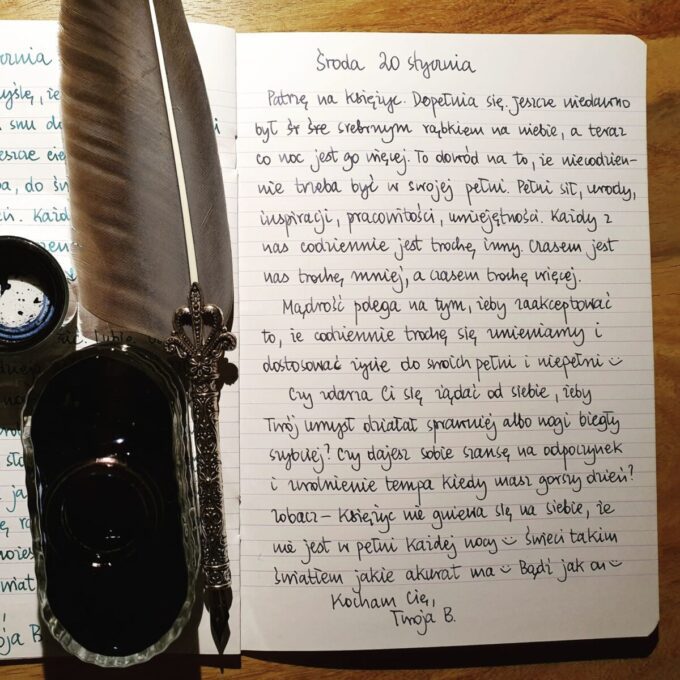 yślę, że
Każd
ja B.
Środa 20 stycznia
Patrzę na Księżyc. Dopełnia się. Jeszcze niedawno
był śr śre srebrnym rąbkiem na niebie, a teraz
co noc jest go więcej. To dowód na to, że niecodzien-
nie trzeba być w swojej pełni. Pełni sił, urody,
inspiracji, pracowitości, umiejętności. Każdy z
nas codziennie jest trochę inny. Czasem jest
nas trochę mniej, a czasem trochę więcej.
Mądrość polega na tym, żeby zaakceptować
to, że codziennie trochę się zmieniamy i
dostosować życie do swoich pełni i niepełni ☺
Czy zdarza Ci się żądać od siebie, żeby
Twój umysł działał sprawniej albo nogi biegły
szybciej? Czy dajesz sobie szansę na odpoczynek
i zwolnienie tempa kiedy masz gorszy dzień?
Zobacz – Księżyc nie gniewa się na siebie, że
nie jest w pełni każdej nocy ☺ Świeci takim
światłem jakie akurat ma ☺ Bądź jak on ☺
Kocham Cię,
Twoja B.